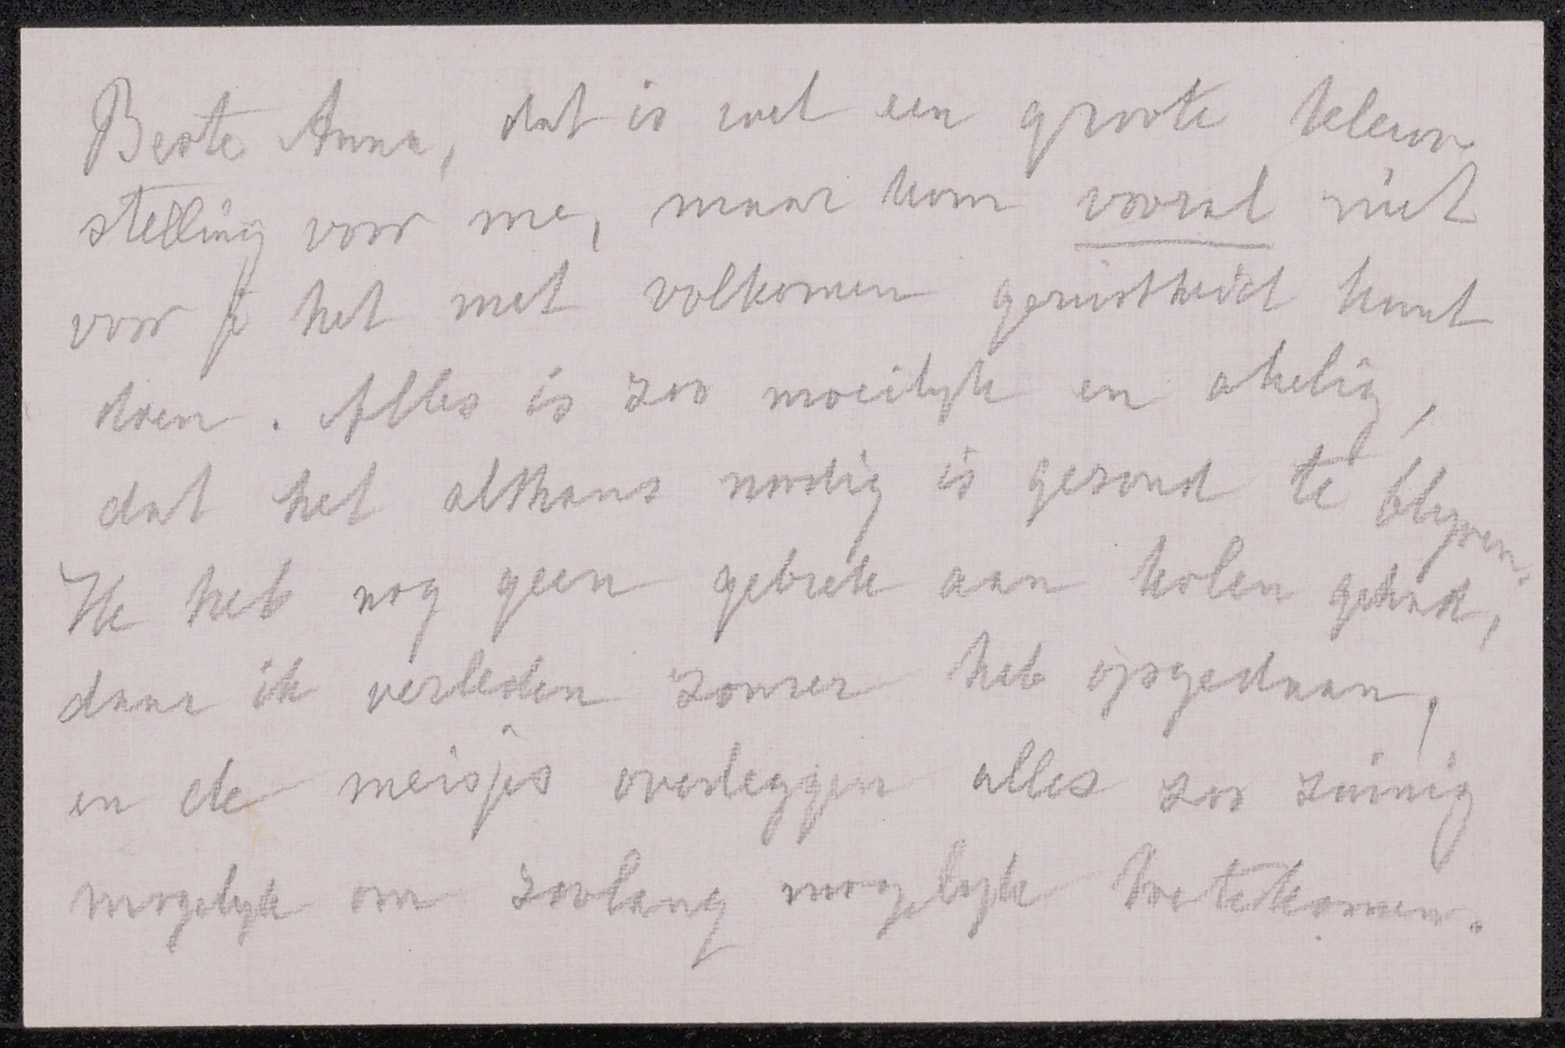 Beste Anna, dat is wel een groote teleur
stelling voor me, maar kom vooral niet
voor je het met volkomen gerustheid kunt
doen. Alles is zoo moeilyk en akelig,
dat het althans noodig is gezond te blyven.
Ik heb nog geen gebrek aan kolen gehad,
daar ik verleden zomer heb opgedaan,
en de meisjes overleggen alles zoo zuinig
mogelyk om zoolang mogelyk toetekomen.